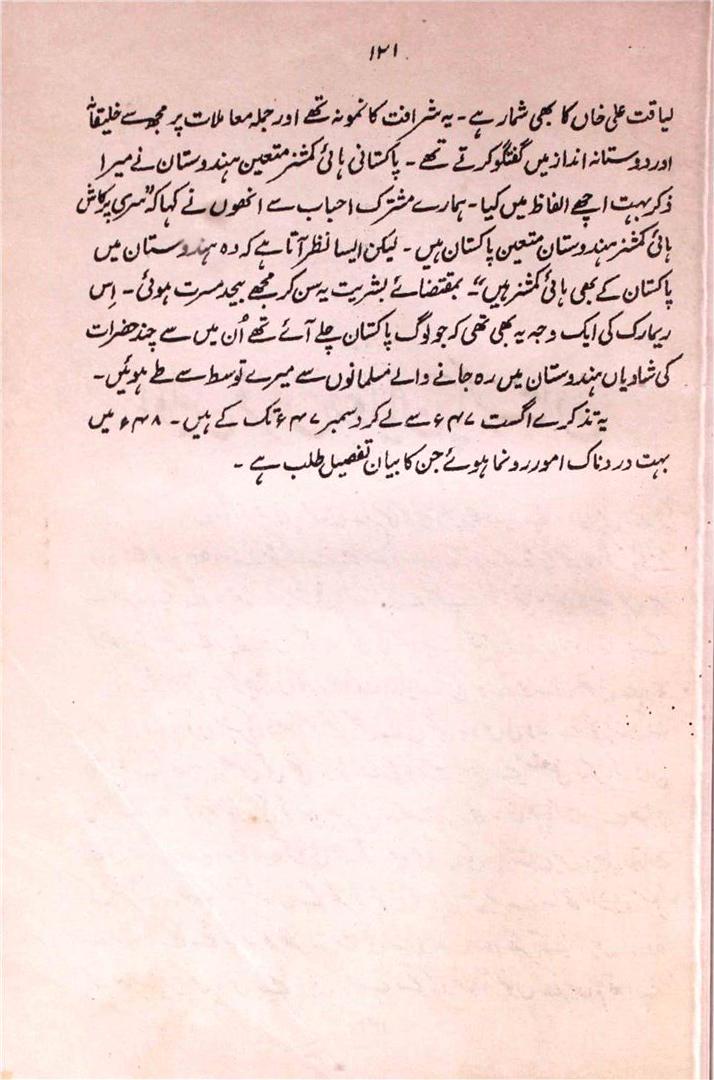 ۱۲۱
لیاقت علی خاں کا بھی شمار ہے۔ یہ شرافت کا نمونہ تھے اور جملہ معاملات پر مجھ سے خلیقانہ
اور دوستانہ انداز میں گفتگو کرتے تھے۔ پاکستانی ہائی کمشنر متعین ہندوستان نے میرا
ذکر بہت اچھے الفاظ میں کیا۔ ہمارے مشترک احباب سے انھوں نے کہا کہ ”سری پرکاش
ہائی کمشنر ہندوستان متعین پاکستان ہیں۔ لیکن ایسا نظر آتا ہے کہ وہ ہندوستان میں
پاکستان کے بھی ہائی کمشنر ہیں“۔ بمقتضائے بشریت یہ سن کر مجھے بیحد مسرت ہوئی۔ اِس
ریمارک کی ایک وجہ یہ بھی تھی کہ جو لوگ پاکستان چلے آئے تھے اُن میں سے چند حضرات
کی شادیاں ہندوستان میں رہ جانے والے مسلمانوں سے میرے توسط سے طے ہوئیں۔
یہ تذکرے اگست ۴۷ء سے لے کر دسمبر ۴۷ء تک کے ہیں۔ ۴۸ء میں
بہت دردناک امور رونما ہوئے جن کا بیان تفصیل طلب ہے۔